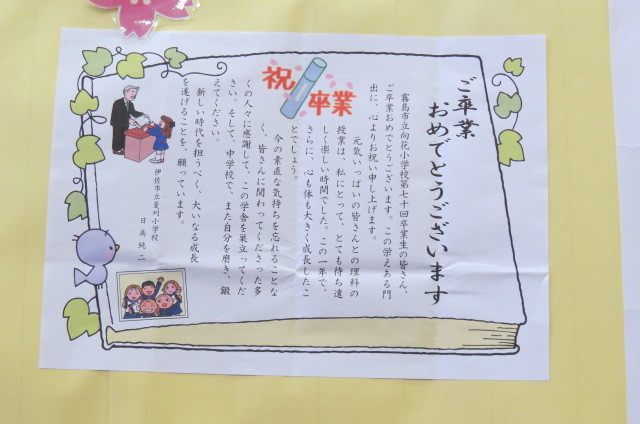 ご卒業
おめでとうございます
祝
卒業
霧島市立向花小学校第七十回卒業生の皆さん、
ご卒業おめでとうございます。この栄えある門
出に、心よりお祝い申し上げます。
元気いっぱいの皆さんとの理科の
授業は、私にとって、とても待ち遠
しく楽しい時間でした。この一年で、
さらに、心も体も大きく成長したこ
とでしょう。
今の素直な気持ちを忘れることな
く、皆さんに関わってくださった多
くの人々に感謝して、この学舎を巣立ってくだ
さい。そして、中学校で、また自分を磨き、鍛
えてください。
新しい時代を担うべく、大いなる成長
を遂げることを、願っています。
伊佐市立菱刈小学校
日高純二